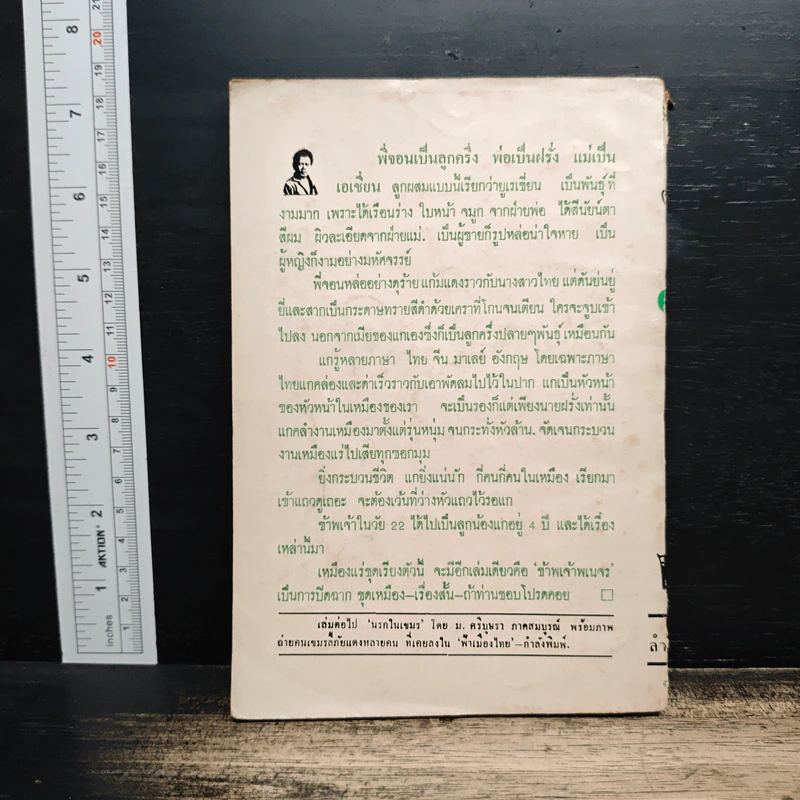 พี่จอนเป็นลูกครึ่ง พ่อเป็นฝรั่ง แม่เป็น
เอเชี่ยน ลูกผสมแบบนี้เรียกว่ายูเรเชี่ยน เป็นพันธุ์ที่
งามมาก เพราะได้เรือนร่าง ใบหน้า จมูก จากฝ่ายพ่อ ได้สีนัยน์ตา
สีผม ผิวละเอียดจากฝ่ายแม่. เป็นผู้ชายก็รูปหล่อน่าใจหาย เป็น
ผู้หญิงก็งามอย่างมหัศจรรย์
พี่จอนหล่ออย่างดุร้าย แก้มแดงราวกับนางสาวไทย แต่ดันย่นยู่
ยี่และสากเป็นกระดาษทรายสีดำด้วยเคราที่โกนจนเตียน ใครจะจูบเข้า
ไปลง นอกจากเมียของแกเองซึ่งก็เป็นลูกครึ่งปลายๆพันธุ์เหมือนกัน
แกรู้หลายภาษา ไทย จีน มาเลย์ อังกฤษ โดยเฉพาะภาษา
ไทยแกคล่องและด่าเร็วราวกับเอาพัดลมไปไว้ในปาก แกเป็นหัวหน้า
ของหัวหน้าในเหมืองของเรา จะเป็นรองก็แต่เพียงนายฝรั่งเท่านั้น
แกคลำงานเหมืองมาตั้งแต่รุ่นหนุ่ม จนกระทั่งหัวล้าน. จัดเจนกระบวน
งานเหมืองแร่ไปเสียทุกซอกมุม
ยิ่งกระบวนชีวิต แกยิ่งแน่นัก กี่คนกี่คนในเหมือง เรียกมา
เข้าแถวดูเถอะ จะต้องเว้นที่ว่างหัวแถวไว้รอแก
ข้าพเจ้าในวัย 22 ได้ไปเป็นลูกน้องแกอยู่ 4 ปี และได้เรื่อง
เหล่านี้มา
เหมืองแร่ชุดเรียงตัวนี้ จะมีอีกเล่มเดียวคือ 'ข้าพเจ้าพเนจร'
เป็นการปิดฉาก ชุดเหมือง–เรื่องสั้น–ถ้าท่านชอบโปรดคอย
เล่มต่อไป 'นรกในเขมร' โดย ม. ศรีบุษรา ภาคสมบูรณ์ พร้อมภาพ
ถ่ายคนเขมรลี้ภัยแดงหลายคน ที่เคยลงใน 'ฟ้าเมืองไทย'–กำลังพิมพ์.
ลำ
AKTION
inches
8
7
6
5
4
3
2
1
21
20
19
18
17
16
15
14
13
12
11
10
9
8
7
6
5
4
3
2
1